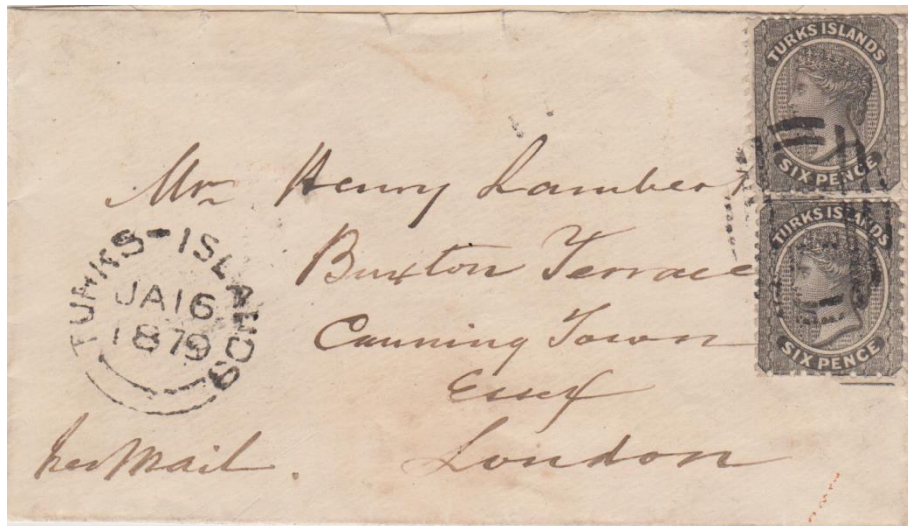 TURKS ISLANDS
SIX PENCE
TURKS ISLANDS
SIX PENCE
Mr Henry Lambert
Buxton Terrace
Canning Town
Essex
London
TURKS-ISLANDS
JA 16
1879
per Mail.